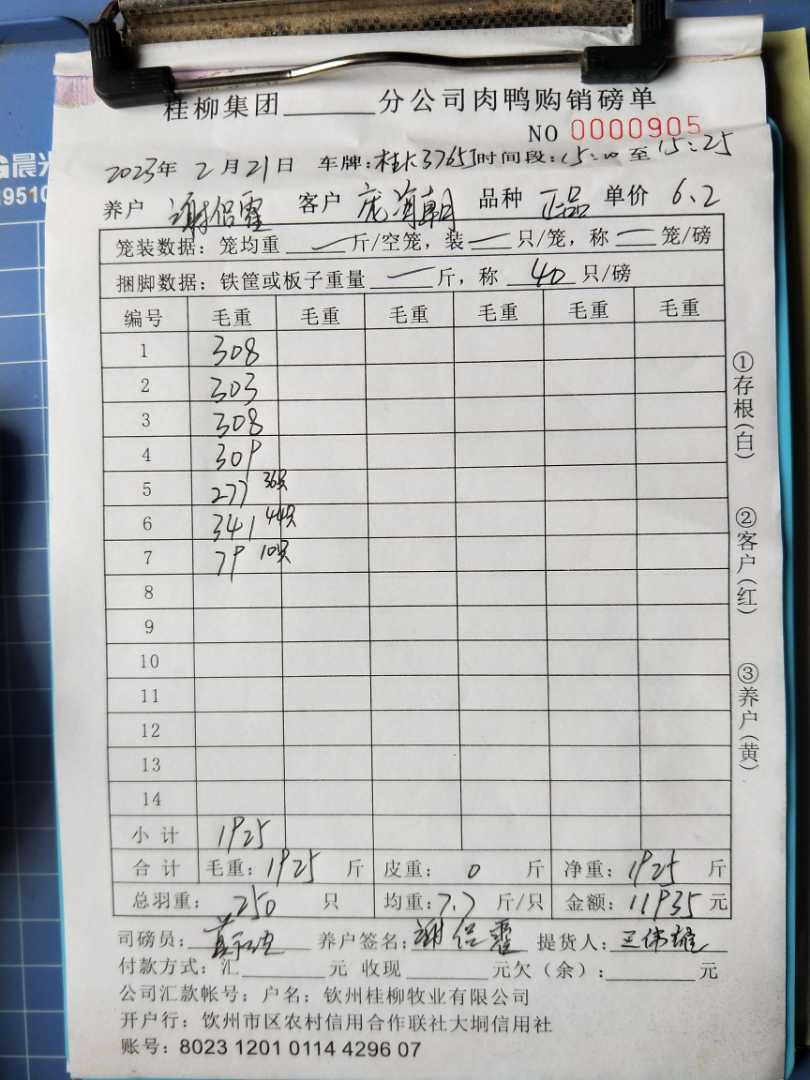 G晨光
9510
桂柳集团______分公司肉鸭购销磅单
NO 0000905
2023年 2月21日 车牌:桂K3765 时间段:15:10 至 15:25
养户 谢侣霍 客户 庞海朝 品种 正品 单价 6.2
笼装数据:笼均重 — 斤/空笼,装 — 只/笼,称 — 笼/磅
捆脚数据:铁筐或板子重量 — 斤,称 40 只/磅
编号 毛重 毛重 毛重 毛重 毛重 毛重
1 308
2 303
3 308
4 309
5 277 36只
6 341 44只
7 79 10只
8
9
10
11
12
13
14
小计 1925
合计 毛重:1925 斤 皮重: 0 斤 净重:1925 斤
总羽重: 250 只 均重:7.7 斤/只 金额:11935 元
司磅员: 养户签名:谢侣霍 提货人:王伟雄
付款方式:汇______元 收现______元欠(余):______元
公司汇款帐号:户名:钦州桂柳牧业有限公司
开户行:饮州市区农村信用合作联社大垌信用社
账号:8023 1201 0114 4296 07
①存根(白)
②客户(红)
③养户(黄)